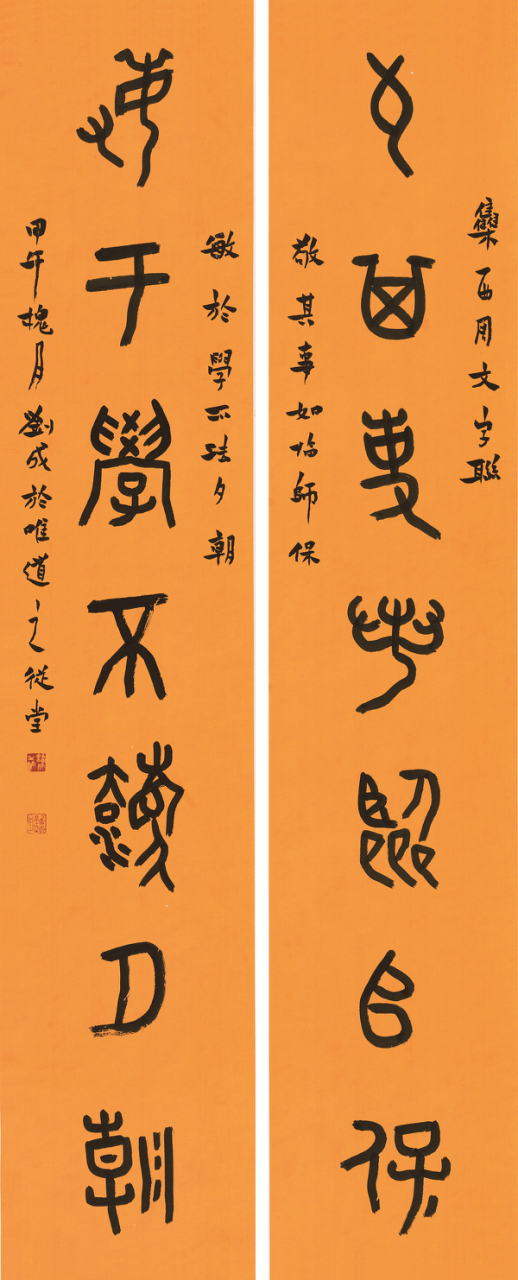 雧西周文字聯
敬其事如臨師保
敬其事如临師保
敏於學不法夕朝
敏于學不灋夕朝
甲午槐月劉成於唯道之從堂